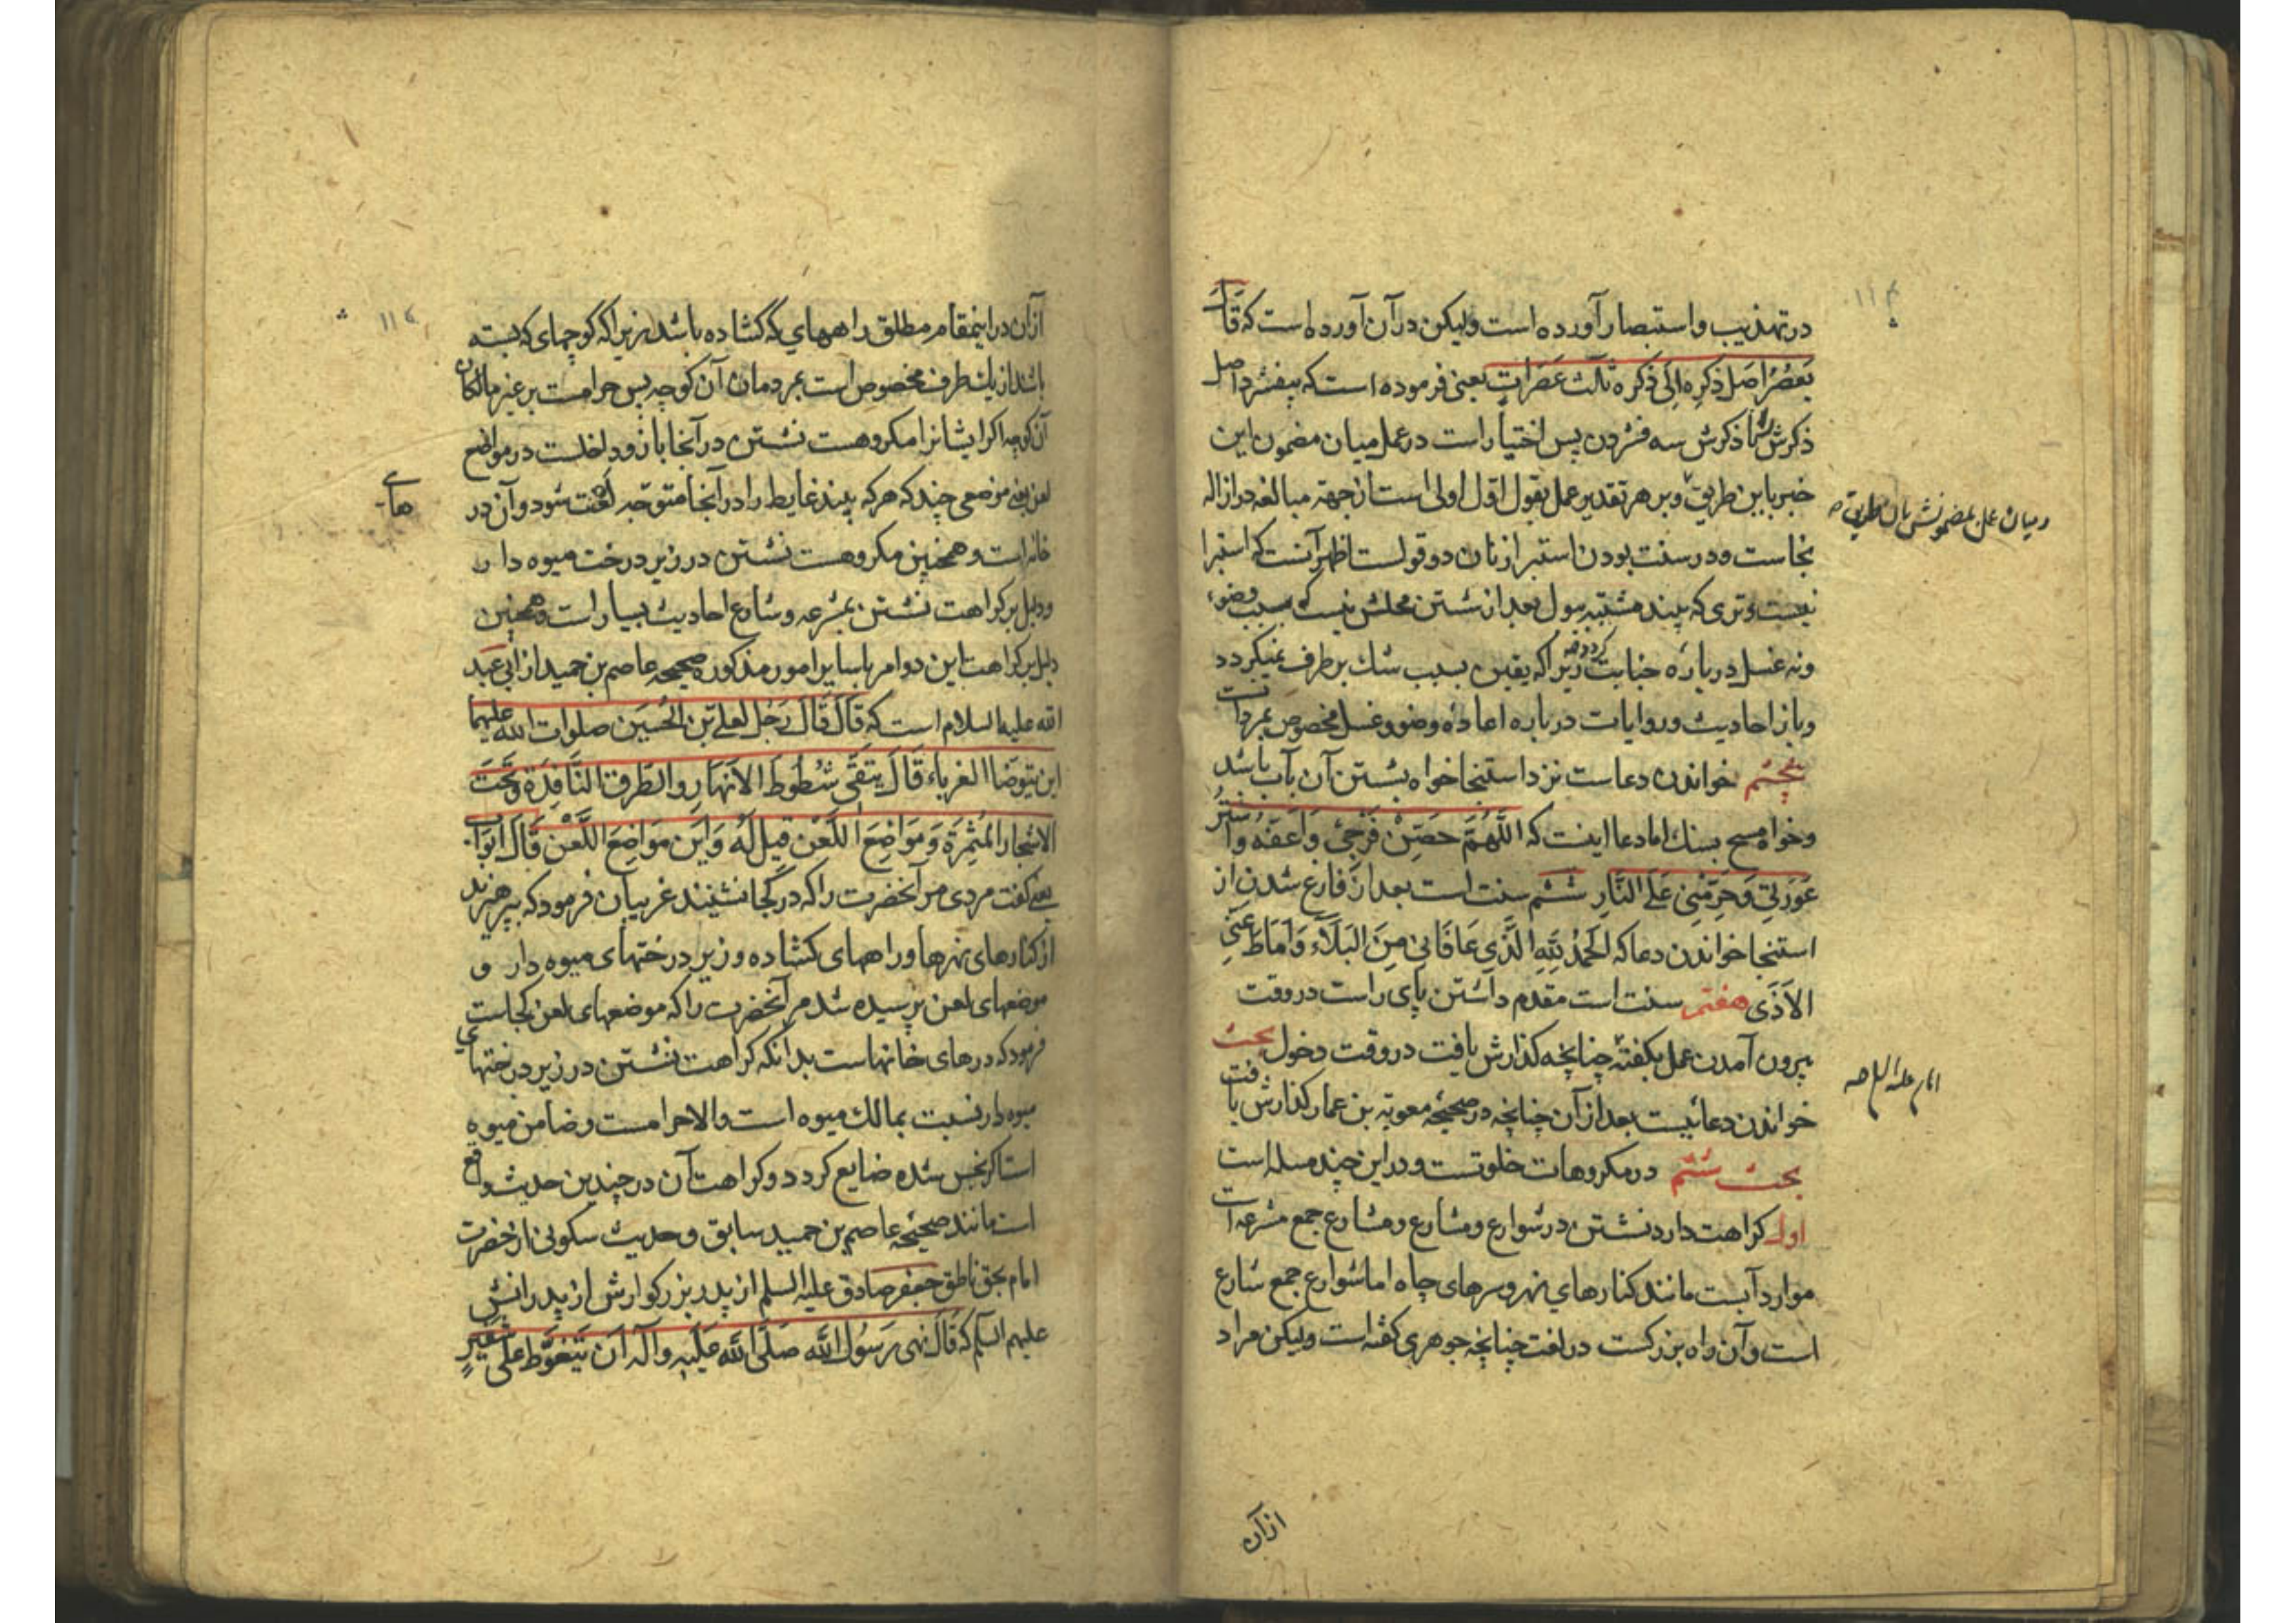 در تهذیب و استبصار آورده است ولیکن در آن آورده است که قال
یعصر اصل ذکره الی ذکره ثلاث عصرات یعنی فرموده است که بیفشرد اصل
ذکرش تا ذکرش سه فشردن پس اختیار است در عمل میان مضمون این
خبر باین طریق و بر هر تقدیر عمل بقول اول اولی است از جهة مبالغه در ازاله
نجاست و در سنت بودن استبرا زنان دو قولست اظهر آنست که استبرا
نیست و تری که بیند مشتبه ببول بعد از شستن محلش نیست که سبب وضوء
و نه غسل در باره جنابت کردد زیرا که یقین بسبب شك بر طرف نمیکردد
و باز احادیث و روایات در باره اعاده وضو و غسل مخصوص بمردانست
پنجم خواندن دعاست نزد استنجا خواه بشستن آن بآب باشد
و خواه مسح بسنك اما دعا اینست که اللَّهُمَّ حَصِّنْ فَرْجِی وَاَعِفَّهُ وَاسْتُرْ
عَوْرَتِی وَحَرِّمْنِی عَلَی النَّارِ ششم سنت است بعد از فارغ شدن از
استنجا خواندن دعا که اَلْحَمْدُ لِلّٰهِ الَّذِی عَافَانِی مِنَ الْبَلَاءِ وَاَمَاطَ عَنِّی
الْاَذَی هفتم سنت است مقدم داشتن پای راست در وقت
بیرون آمدن عمل بکفتۀ چنانچه کذارش یافت در وقت دخول بحث
خواندن دعائیست بعد از آن چنانچه در صحیحۀ معویة بن عمار کذارش یافت
بحث ششم در مکروهات خلوتست و در این چند مسله است
اول کراهت دارد نشستن در شوارع و مشارع و مشارع جمع مشرعه است
موارد آبست مانند کنارهای نهر و سرهای چاه اما شوارع جمع شارع
است و آن راه بزرکست در لغت چنانچه جوهری کفته است ولیکن مراد
و میان عمل بمضمونش بان طریق صح
امام علیه السلام صح
از آن
از آن در اینمقام مطلق راههای که کشاده باشد زیرا که کوچهای که بسته
باشد از یکطرف مخصوص است بمردمان آن کوچه پس حرامست بر غیر مالکان
آن کوچه اکر ایشانرا مکروهست نشستن در آنجا باز و داخلست در مواضع
لعن یعنی موضعی چند که هر که بیند غایط را در آنجا متوجه لعنت شود و آن در
خانه است و همچنین مکروهست نشستن در زیر درخت میوه دار
و دلیل بر کراهت نشستن بمشرعه و شارع احادیث بسیار است و همچنین
دلیل بر کراهت این دو امر با سایر امور مذکوره صحیحه عاصم بن حمید از ابی عبد
الله علیه السلام است که قَالَ قَالَ رَجُلٌ لِعَلِیِّ بْنِ الْحُسَیْنِ صلوات الله علیهما
این یتوضا الغرباء قَالَ یَتَّقِی شُطُوطَ الْاَنْهَارِ وَالطُّرُقَ النَّافِذَةَ وَتَحْتَ
الاشجار الْمُثْمِرَةِ وَمَوَاضِعَ اللَّعْنِ قیل لَهُ وَاَیْنَ مَوَاضِعَ اللَّعْنِ قَالَ اَبْوَابُ
یعنی کفت مردی مر آنحضرت را که در کجا نشینند غریبان فرمود که بپرهیزند
از کنارهای نهرها و راههای کشاده و زیر درختهای میوه دار و
موضعهای لعن پرسیده شد مر آنحضرت را که موضعهای لعن کجاست
فرمود که درهای خانهاست بدانکه کراهت نشستن در زیر درختهای
میوه دار نسبت بمالك میوه است و الا حرامست و ضامن میوه
است اکر نجس شده ضایع کردد و کراهت آن در چندین حدیث واقع
است مانند صحیحۀ عاصم بن حمید سابق و حدیث سکونی از حضرت
امام بحق ناطق جعفر صادق علیه السلم از پدر بزرکوارش از پدرانش
علیهم السلم که قَالَ نهی رَسُولُ اللّٰه صَلَّی اللّٰه عَلَیْهِ وَآلِه اَنْ یَتَغَوَّطَ عَلَی شَفِیرِ
های